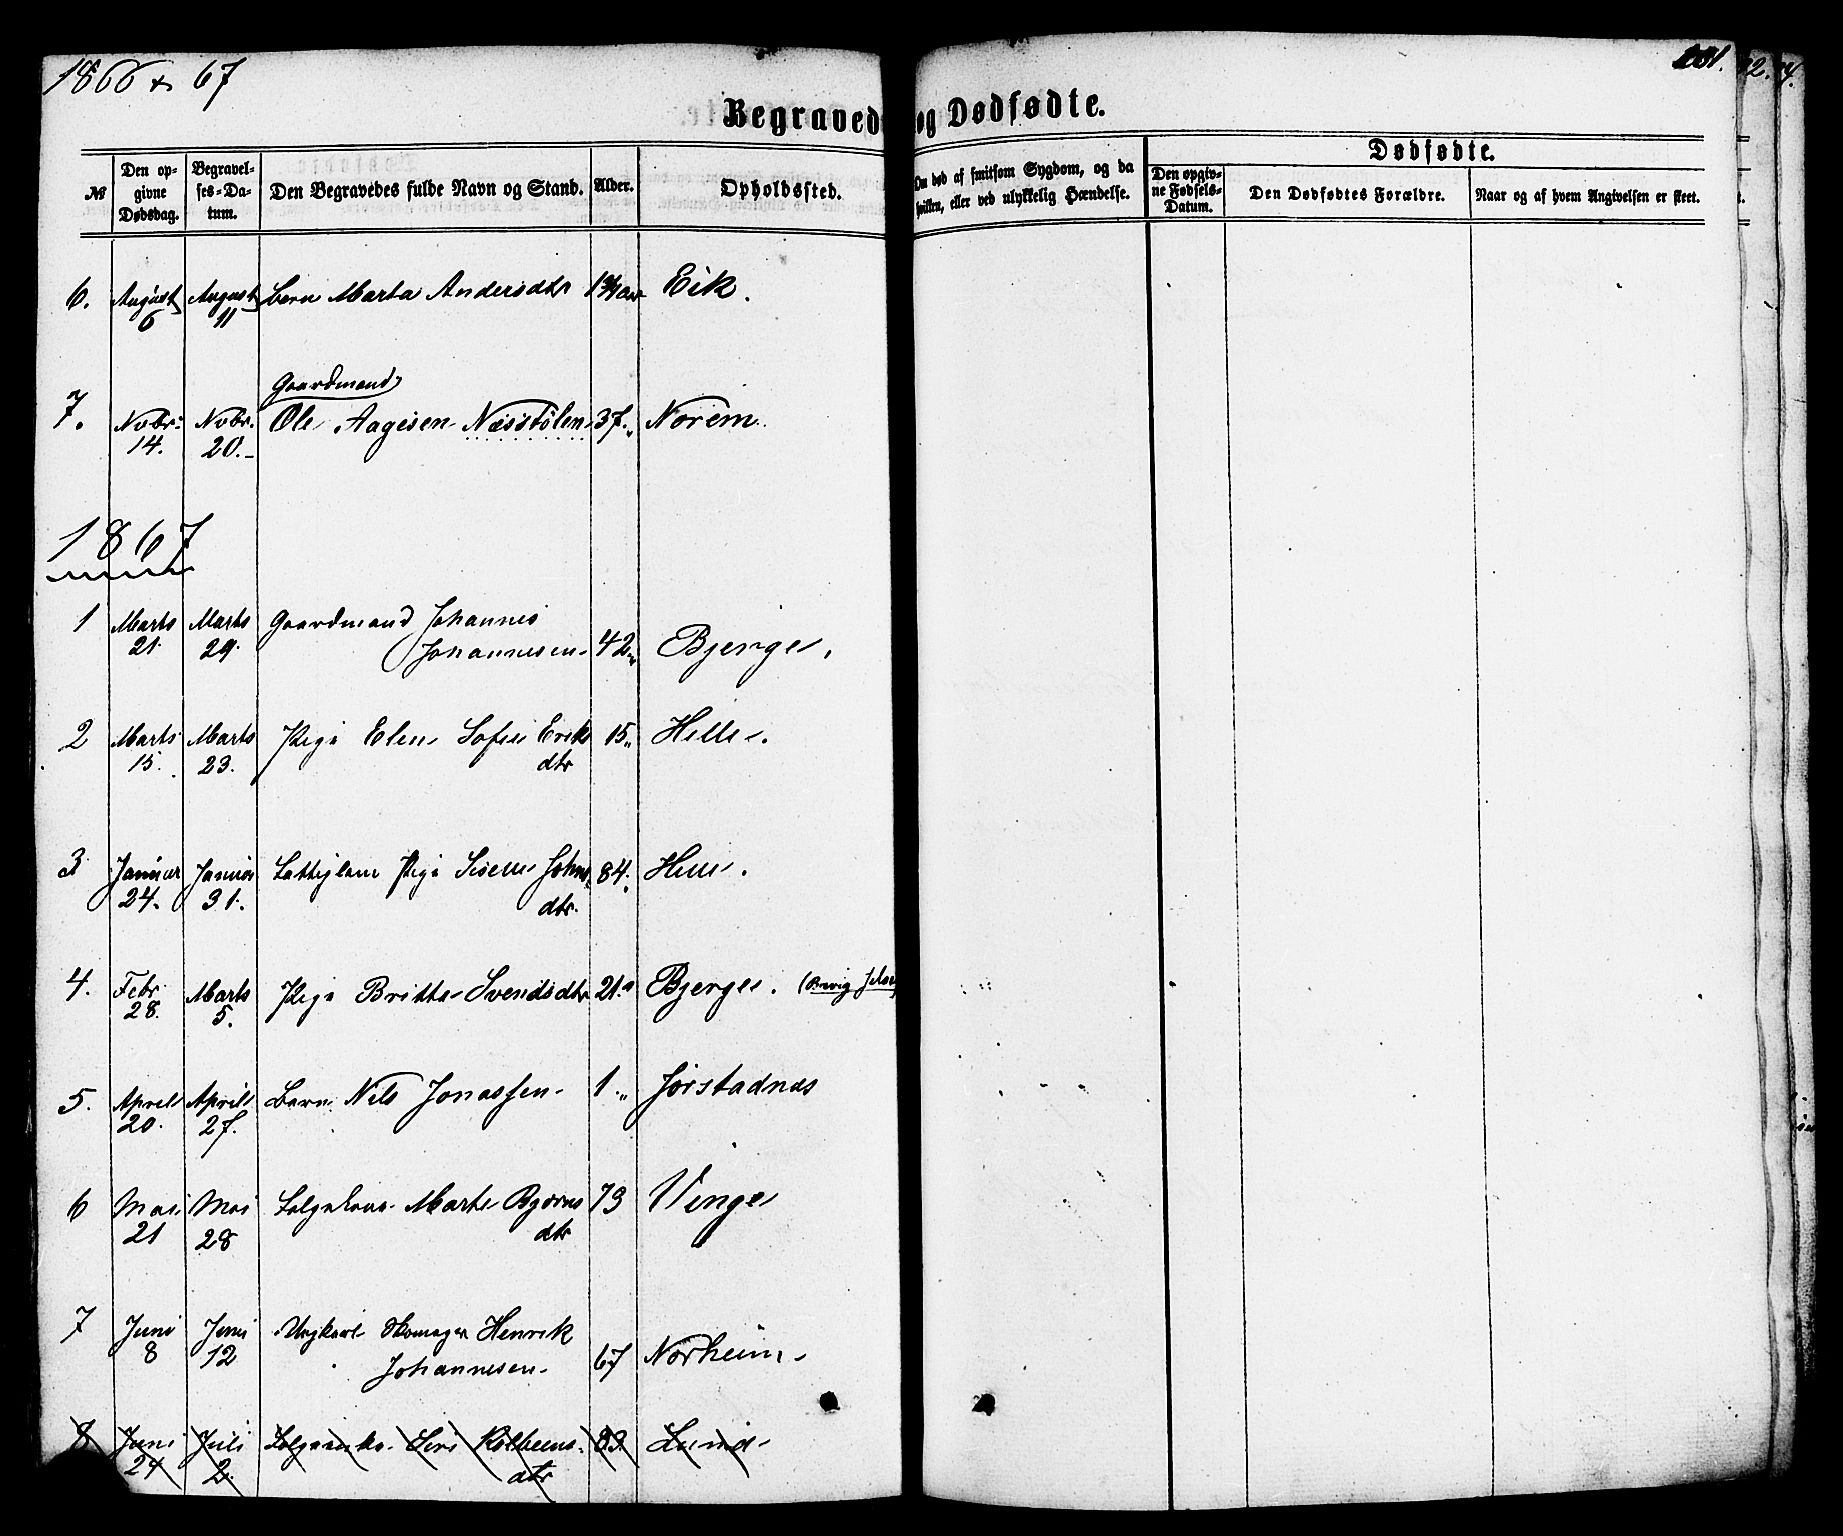 1866 & 67
231.
Begravede og Dødfødte.
№ Den opgivne Dødsdag. Begravelses-Datum. Den Begravedes fulde Navn og Stand. Alder. Opholdssted. Om død af smitsom Sygdom, og da hvilken, eller ved ulykkelig Hændelse.
Dødfødte.
Den opgivne Fødsels-Datum. Den Dødfødtes Forældre. Naar og af hvem Angivelsen er skeet.
6. August 6 August 11 Barn Marta Andersdtr Eik.
Gaardmand
7. Novbr. 14. Novbr. 20. Ole Aagesen Næsstölen 37. Norem.
1867
1 Marts 21. Marts 29. Gaardmand Johannes
Johannesen 42 Bjerge.
2 Marts 15. Marts 23. Pige Elen Sofie Eriks
dtr 15 Helle.
3 Januar 24. Januar 31. Pige Johns
dtr. 84. Helle.
4. Febr. 28. Marts 5. Pige Britte Svendsdtr 21. Bjerge.
5. April 20. April 27. Barn Nils Jonassen 1 Jörstadnæs
6 Mai 21 Mai 28 Marte Bjørns
dtr 73 Vinge
7 Juni 8 Juni 12 Ungkarl Skomager Henrik
Johannesen 67 Norheim
8 Juni 24 Juli 2. Siri Kolbeens
dtr 83. Lund